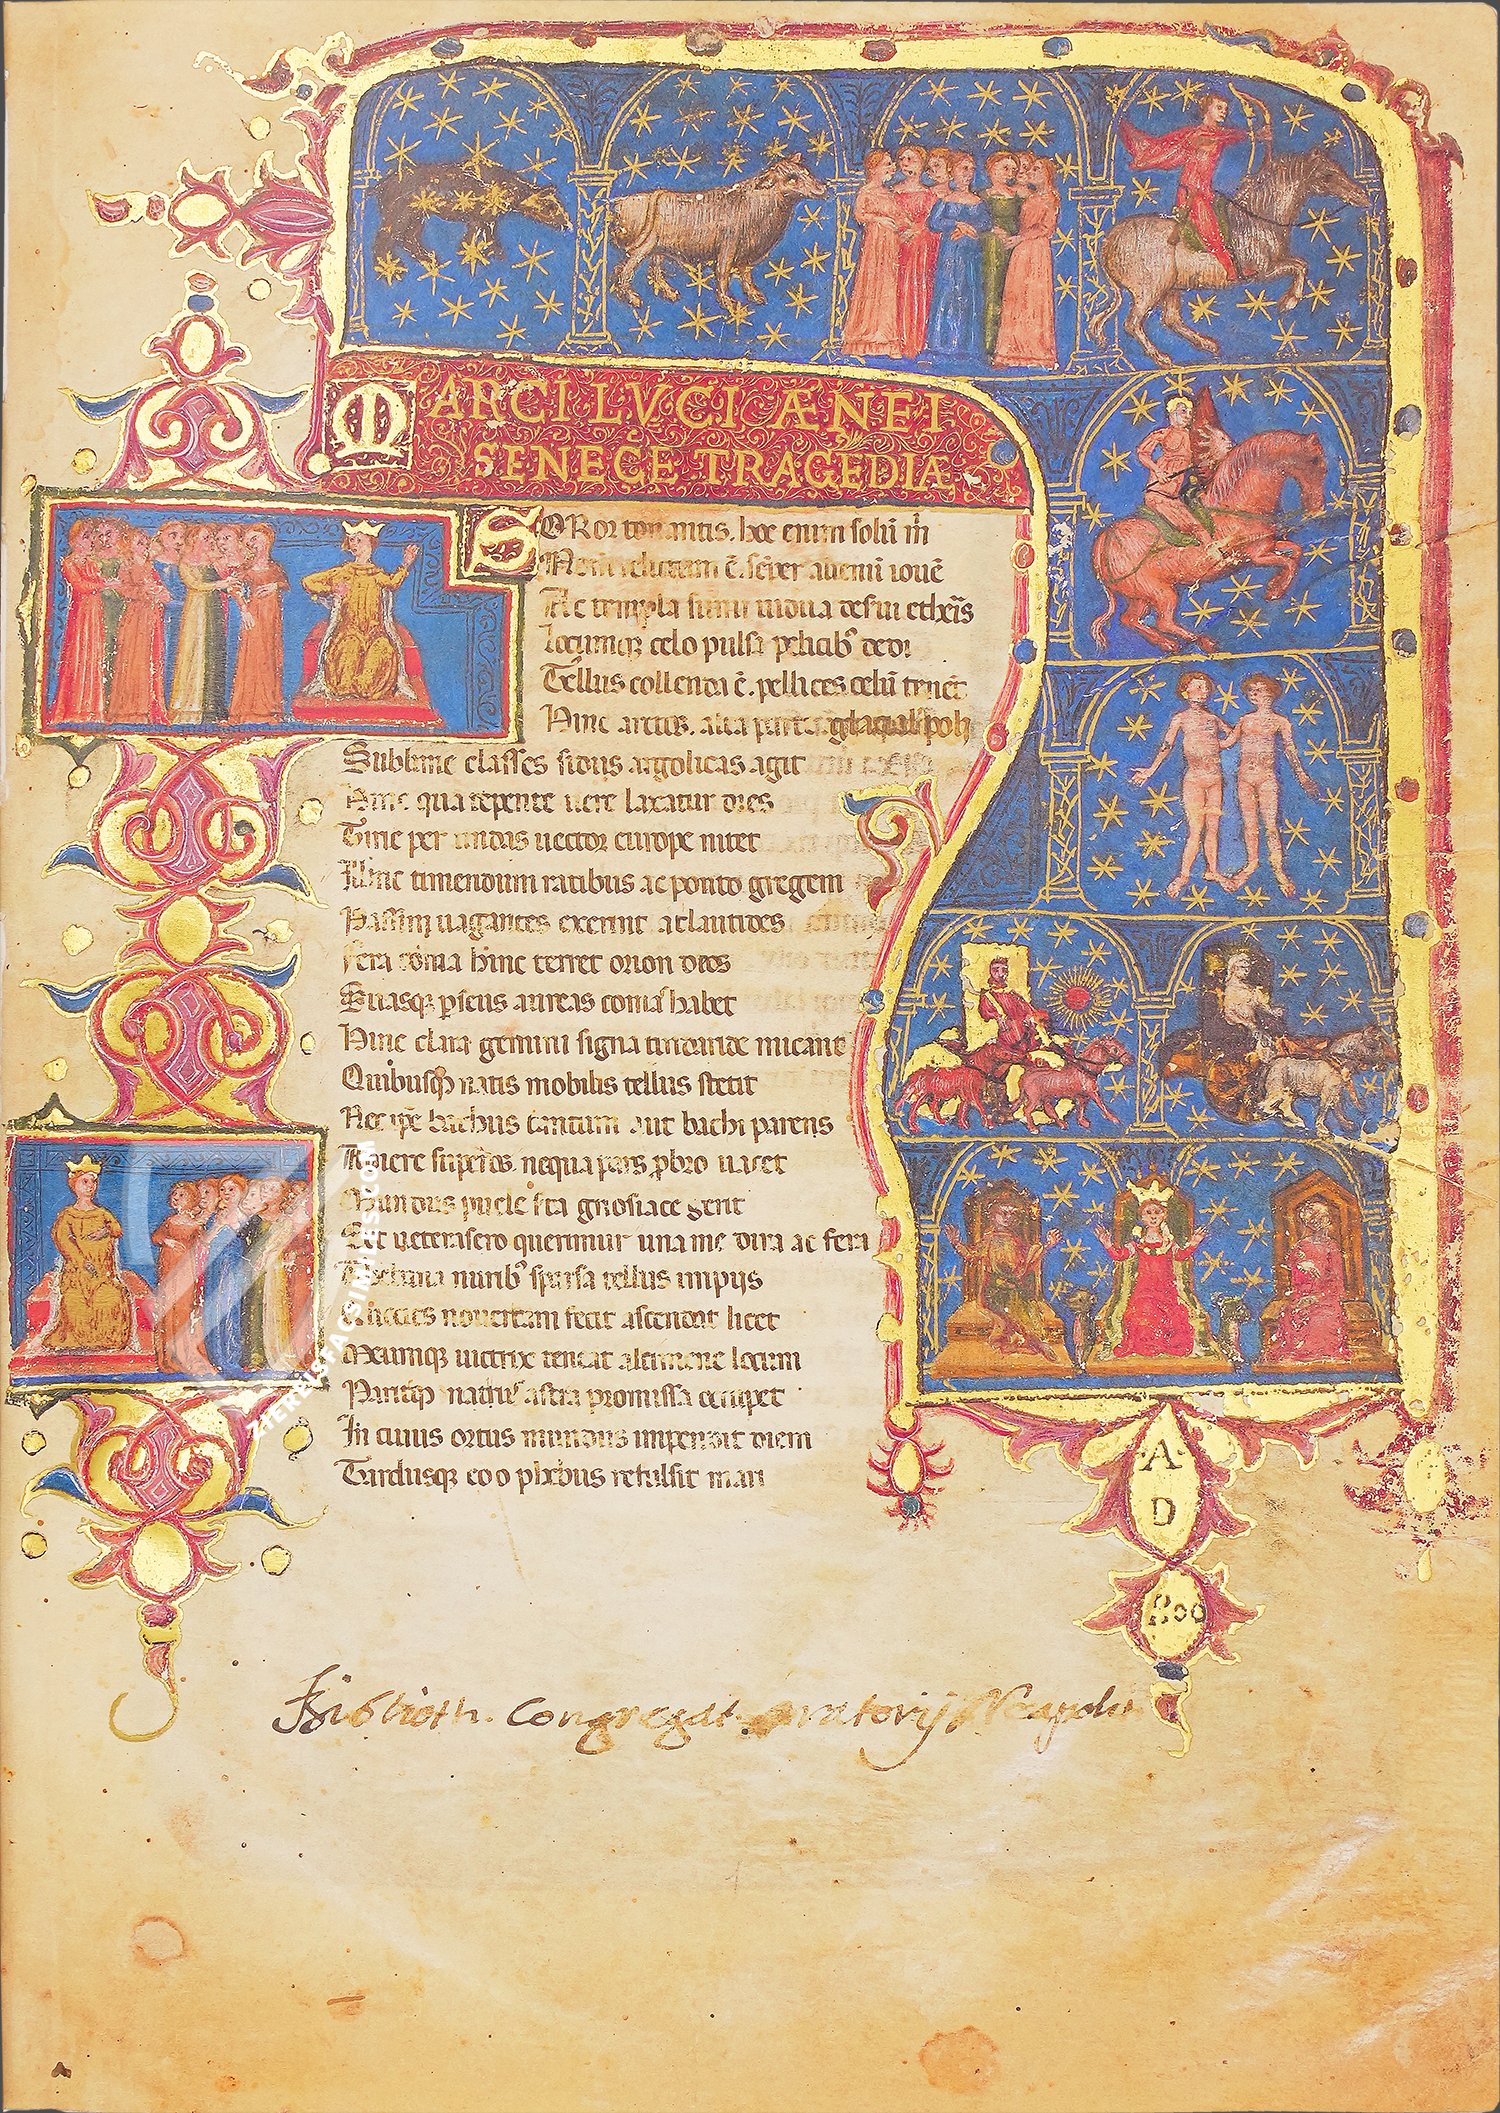 MARCI LVCI ÆNEI
SENECE TRAGEDIA
SOROR tonantis. hoc enim solū m̄
Nomē relictum ē. sēper alienū iouē
Ac templa sūmi uidua deserui etheris
Locumq; celo pulsa pelicib; dedi
Tellus collenda ē. pellices celū tenēt
Hinc arctos. alta parte glacialis poli
Sublime classes sidus argolicas agit
Hinc qua repente uere laxatur dies
Tirie per undas uector europe nitet
Illinc timendum ratibus ac ponto gregem
Passim uagantes exerunt atlantides
Fera coma hinc terret orion deos
Suasq; p̄seus aureas comas habet
Hinc clara gemini signa tindaride micant
Quibusq; natis mobilis tellus stetit
Nec ip̄e bachus tantum aut bachi parens
Adiere superos. nequa pars p̄bro uacet
Mundus puelle serta gnosiace gerit
Set uetera sero querimur una me dira ac fera
Thebana nurib; sparsa tellus impijs
Quotiens nouercam fecit ascendat licet
Meumq; uictrix teneat alcmene locum
Pariterq; natus astra promissa occupet
In cuius ortus mundus impendit diem
Tardusq; eoo phebus refulsit mari
A
D
Biblioth. Congregat. oratorij Neapolis
A
ZIEREIS FACSIMILES.COM